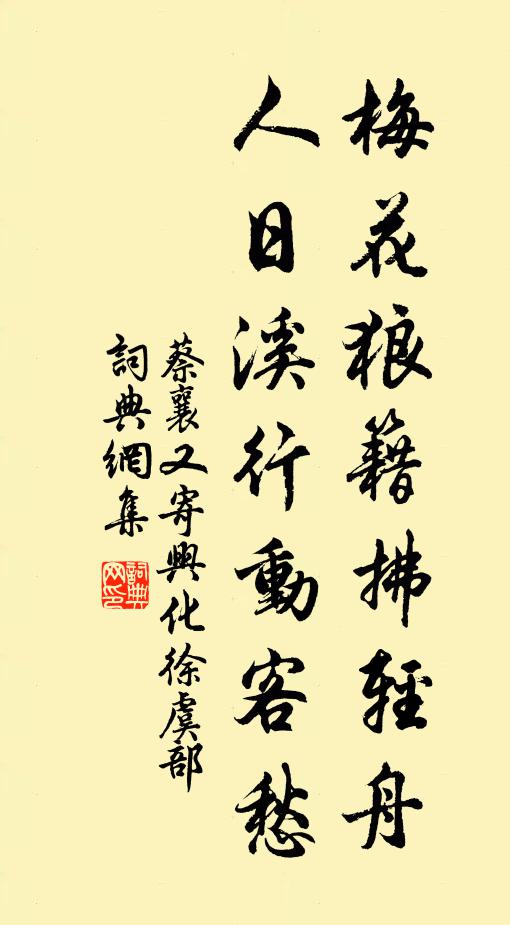 梅花狼籍拂輕舟
人日溪行動客愁
蔡襄又寄興化徐虞部
詞典網集
詞典网印